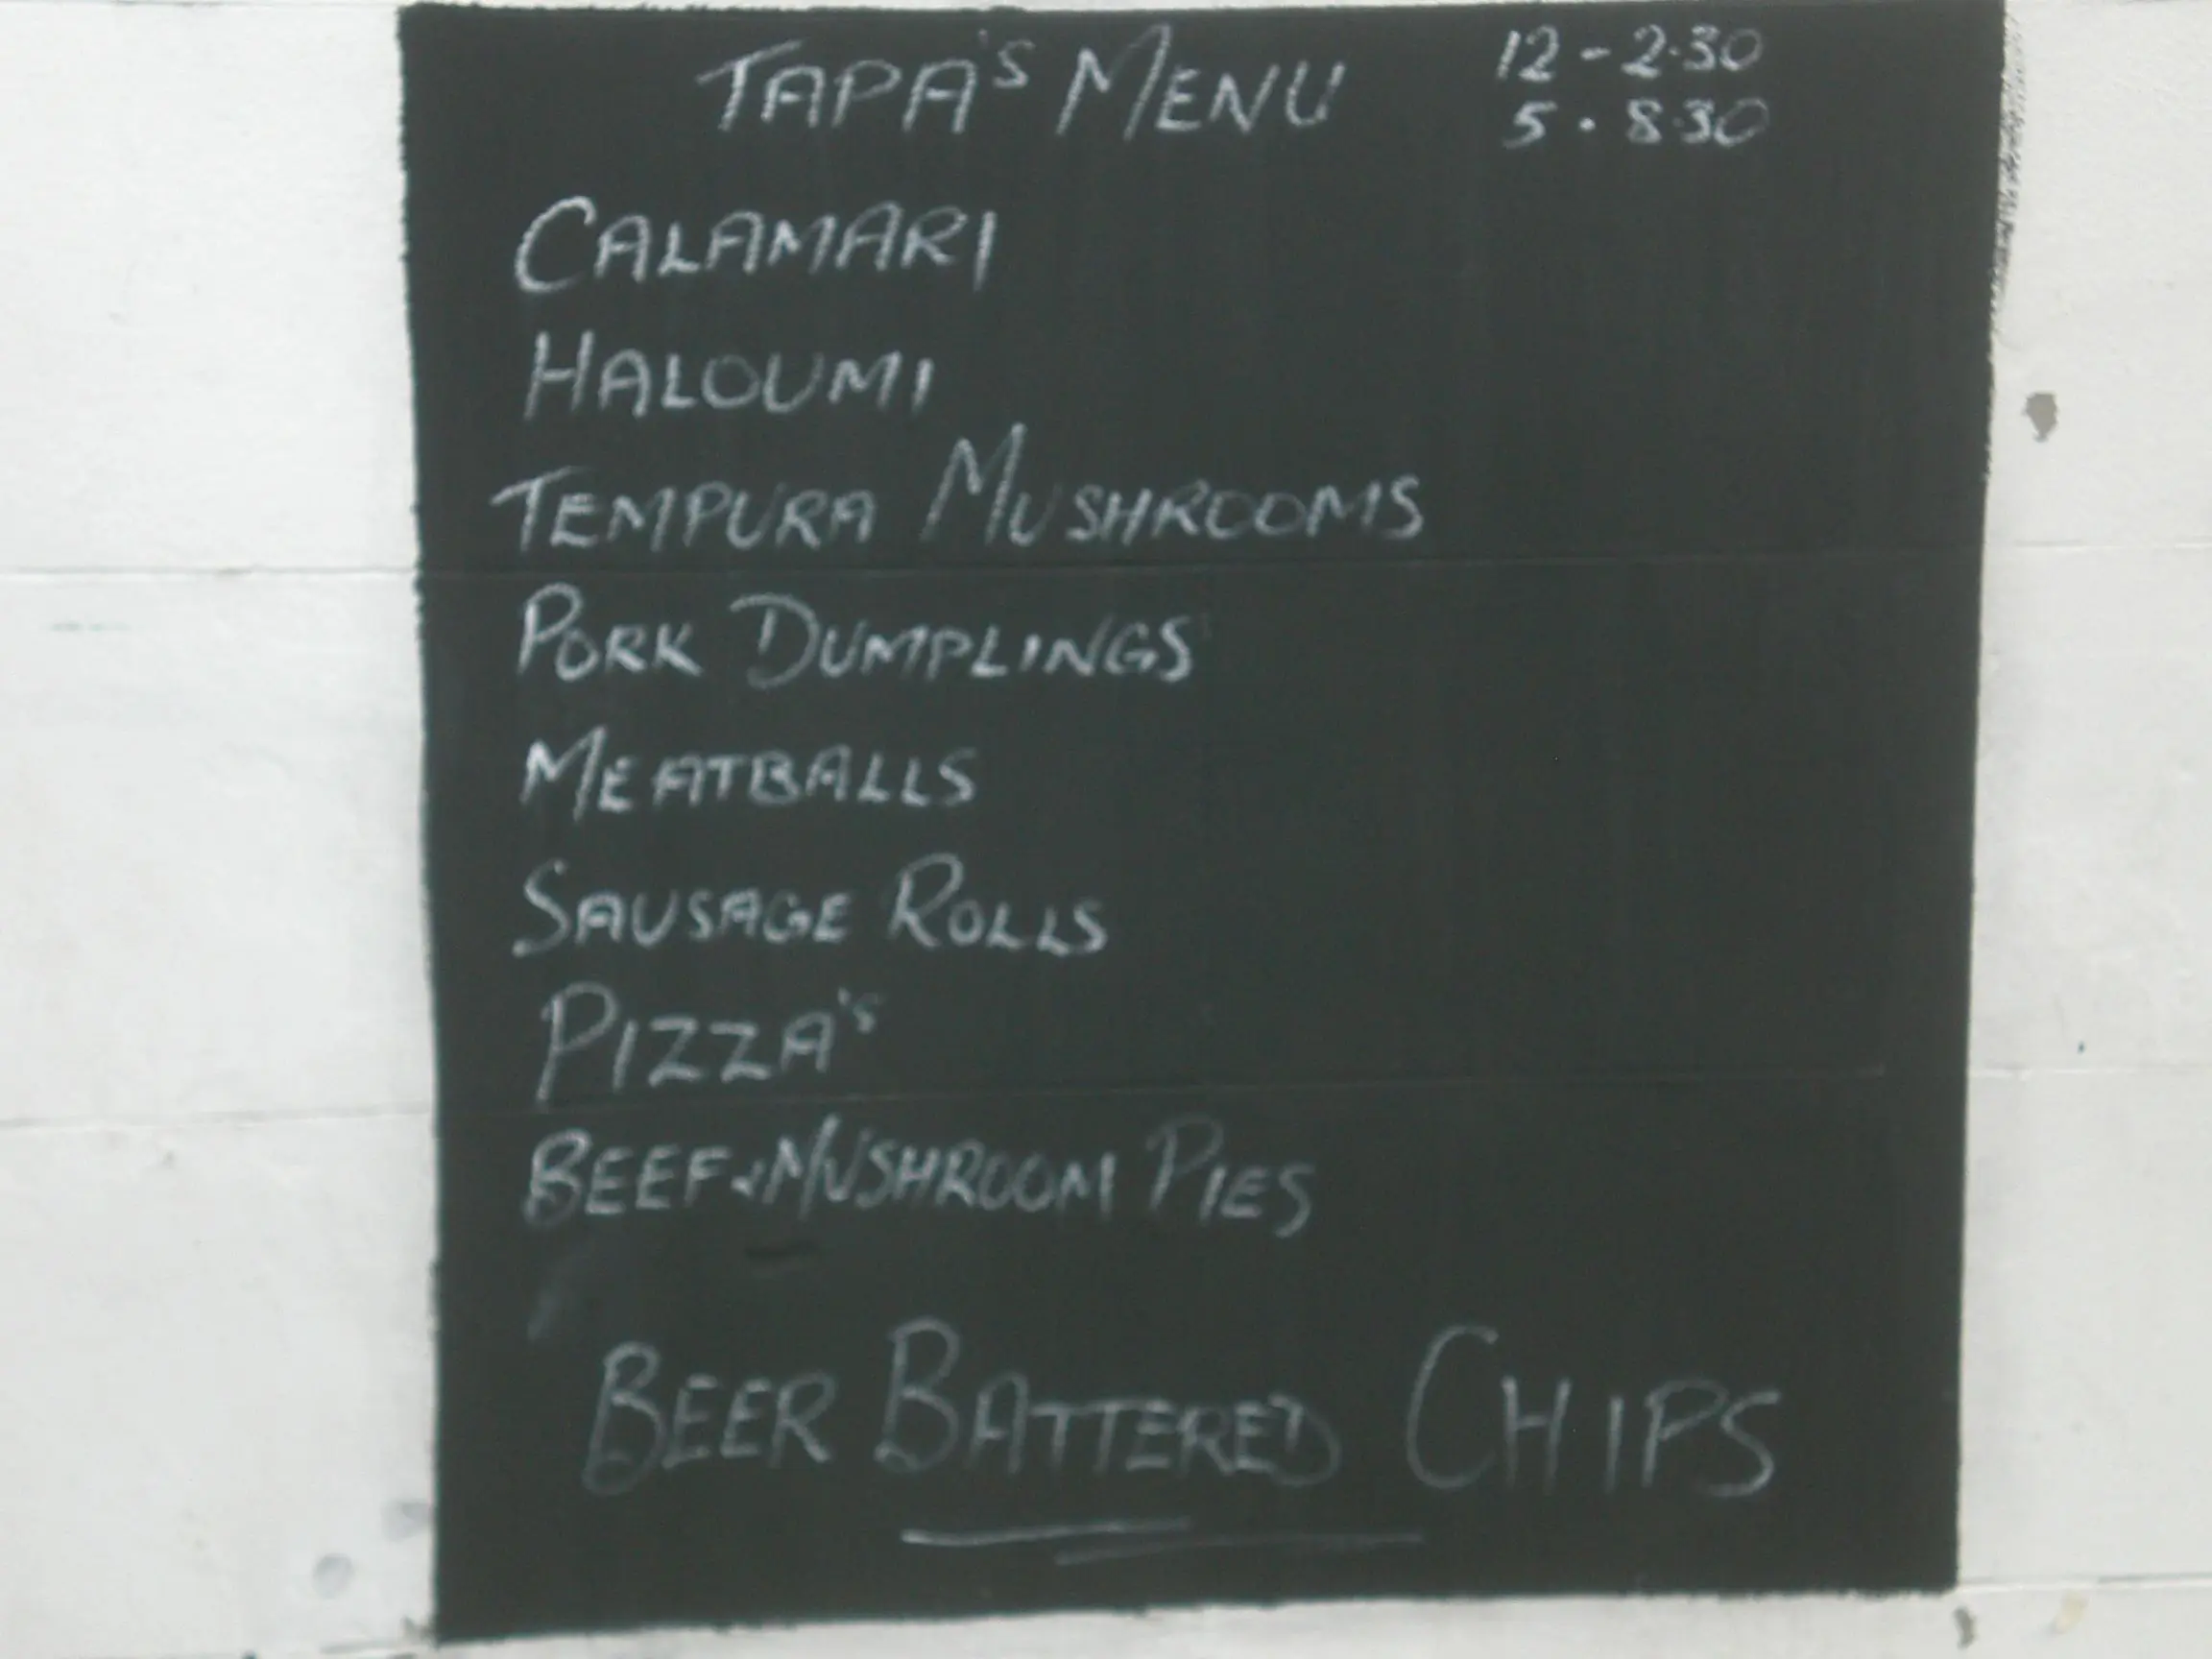 TAPA'S MENU 12 - 2.30
5 . 8.30
CALAMARI
HALOUMI
TEMPURA MUSHROOMS
PORK DUMPLINGS
MEATBALLS
SAUSAGE ROLLS
PIZZA'S
BEEF & MUSHROOM PIES
BEER BATTERED CHIPS